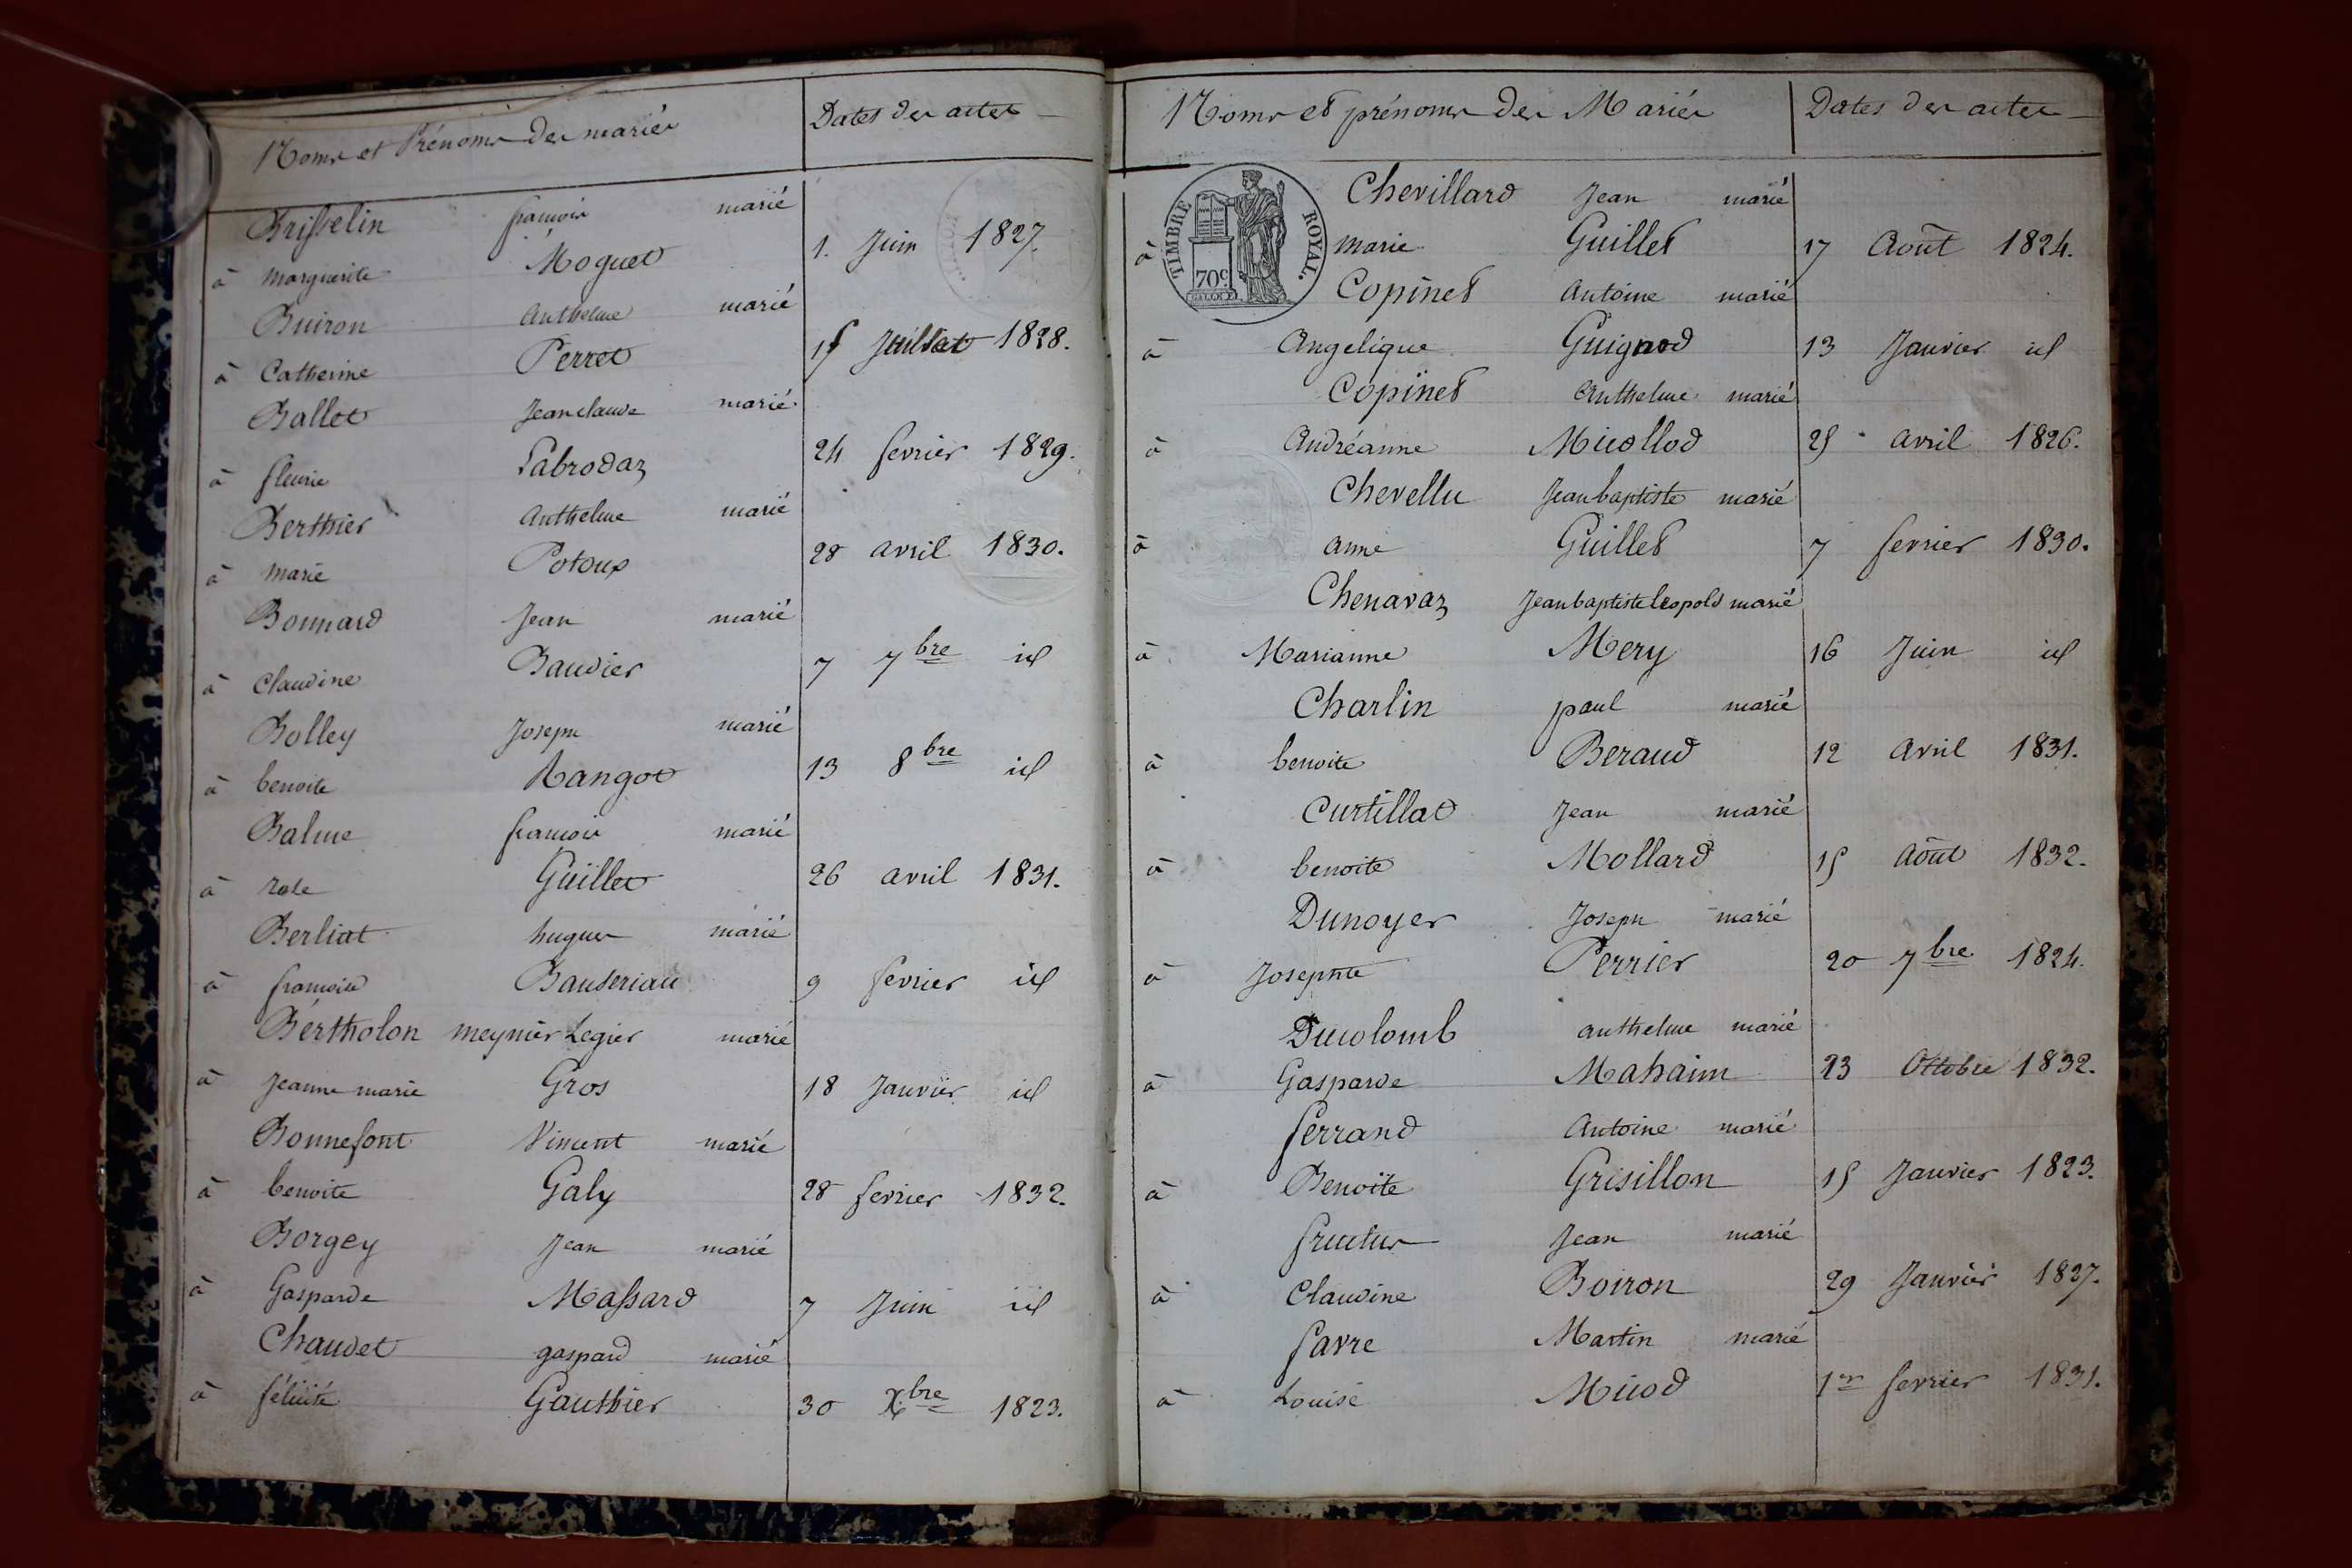 Noms et Prénoms des mariés Dates des actes
Brisselin françois marié
à marguerite Moguet 1. Juin 1827.
Buiron Anthelme marié
à Catherine Perret 15 Juillet 1828.
Ballet Jean claude marié
à fleurie Labrodaz 24 fevrier 1829.
Berthier Anthelme marié
à marie Potoux 28 avril 1830.
Bonnard Jean marié
à Claudine Baudier 7 7bre id
Bolley Joseph marié
à benoite Rangot 13 8bre id
Balme françois marié
à rose Guillet 26 avril 1831.
Berliat hugues marié
à françoise 9 fevrier id
Bertholon meynier Legier marié
à Jeanne marie Gros 18 Janvier id
Bonnefont Vincent marié
à benoite Galy 28 fevrier 1832.
Borgey Jean marié
à Gasparde Massard 7 Juin id
Chaudet gaspard marié
à félicité Gauthier 30 Xbre 1823.
Noms et prénoms des Mariés Dates des actes
TIMBRE ROYAL.
70c
Chevillard Jean marié
à marie Guillet 17 Août 1824.
Copinet Antoine marié
à Angelique Guignod 13 Janvier id
Copinet Anthelme marié
à Andréanne Micollod 25 avril 1826.
Chevellu Jean baptiste marié
à anne Guillet 7 fevrier 1830.
Chenavaz Jean baptiste leopold marié
à Marianne Mery 16 Juin id
Charlin paul marié
à benoite Beraud 12 Avril 1831.
Curtillat Jean marié
à benoite Mollard 15 Août 1832.
Dunoyer Joseph marié
à Josephte Perrier 20 7bre 1824.
Ducolomb anthelme marié
à Gasparde Mahaim 23 Octobre 1832.
ferrand Antoine marié
à Benoite Grisillon 15 Janvier 1823.
fructus Jean marié
à Claudine Boiron 29 Janvier 1827.
favre Martin marié
à Louise Micod 1er fevrier 1831.